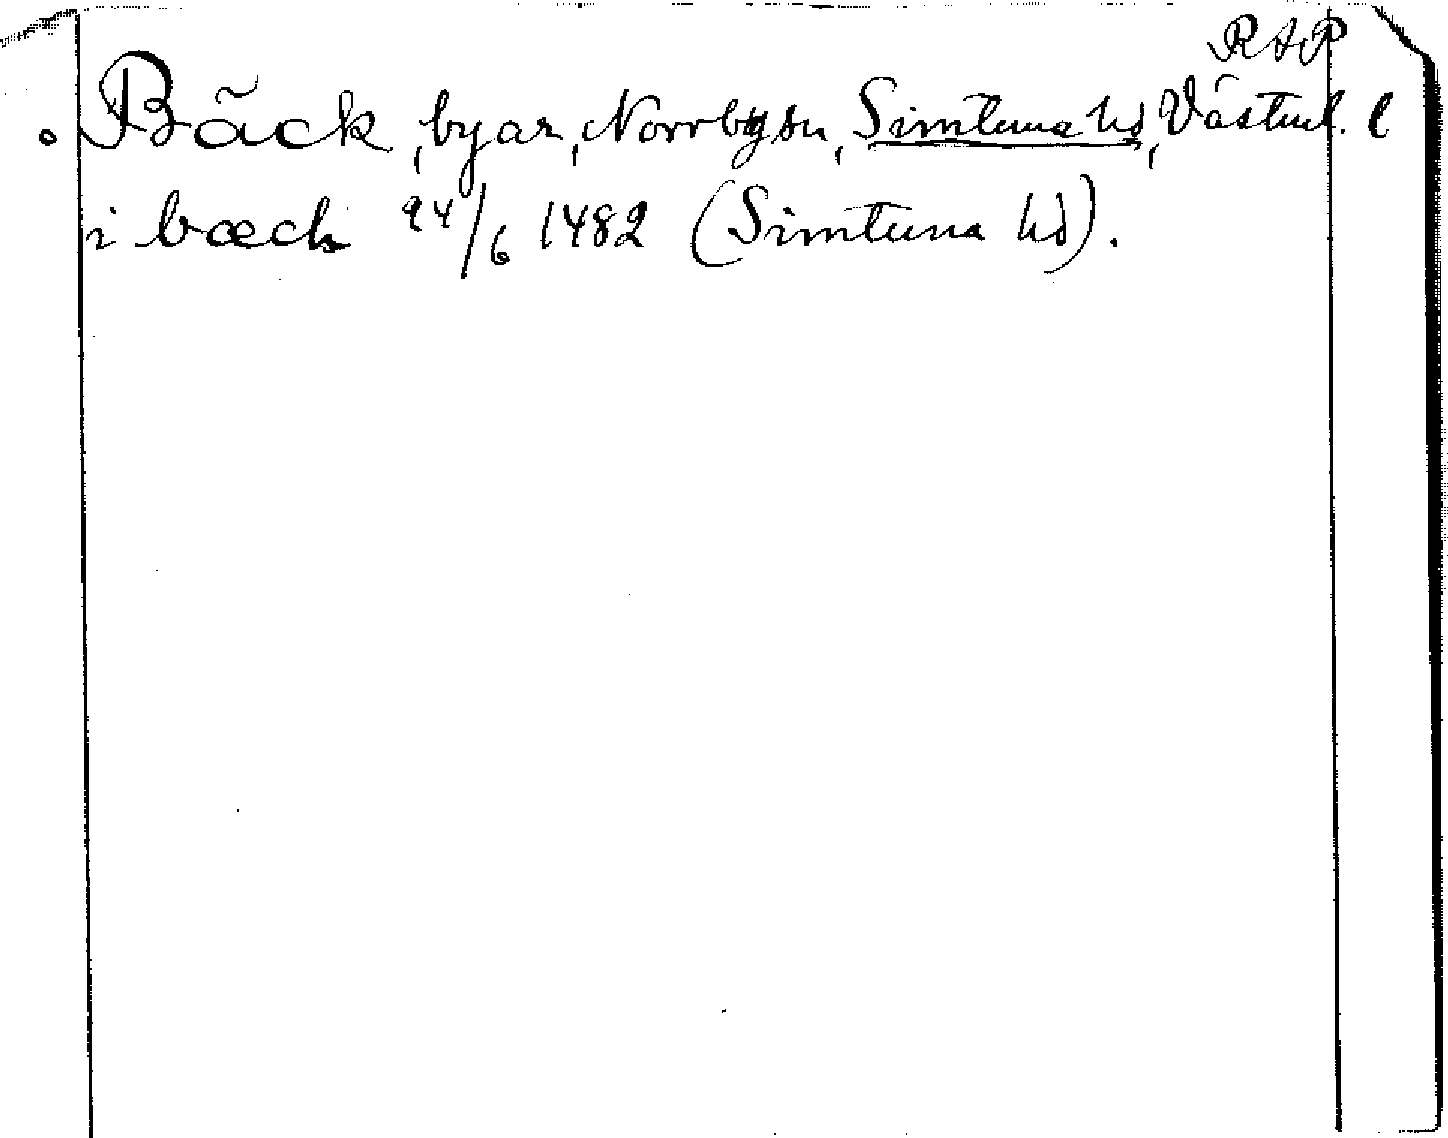 RAP
Bäck, byar, Norrby sn, Simtuna hd, Västml. l
i bæck 24/6 1482 (Simtuna hd).